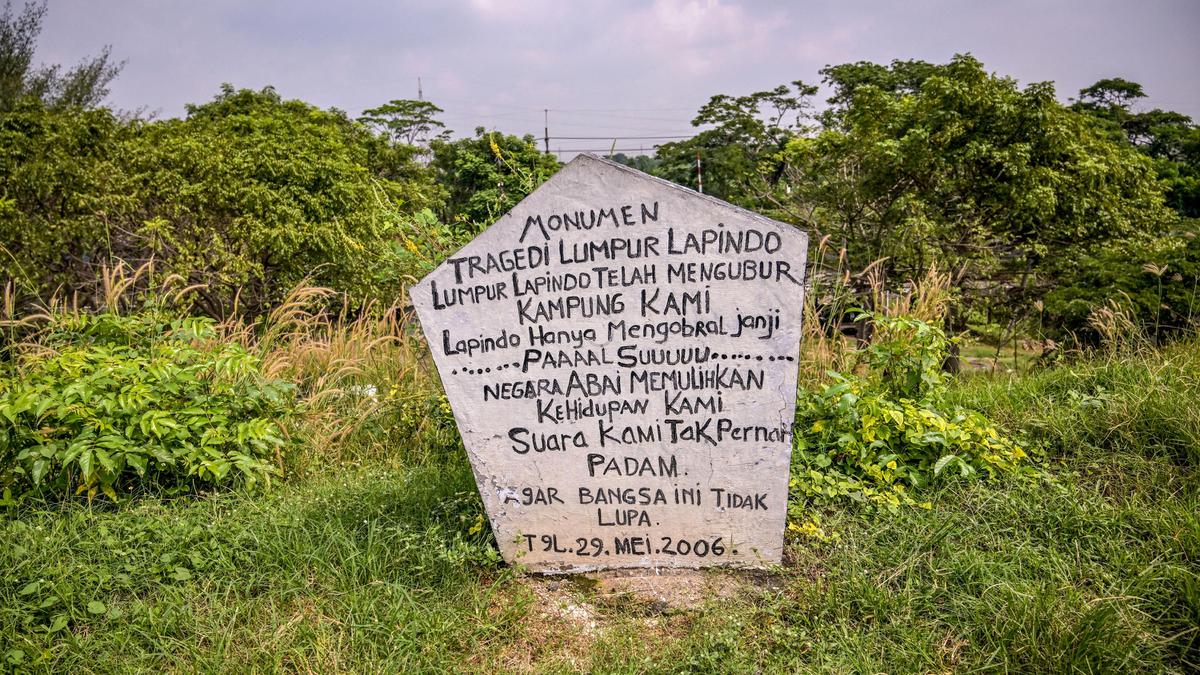 MONUMEN
TRAGEDI LUMPUR LAPINDO
LUMPUR LAPINDO TELAH MENGUBUR
KAMPUNG KAMI
Lapindo Hanya Mengobral janji
.......PAAAAL SUUUUU........
NEGARA ABAI MEMULIHKAN
KEHIDUPAN KAMI
SUARA KAMI TAK PERNAH
PADAM.
AGAR BANGSA INI TIDAK
LUPA.
T9L.29.MEI.2006.